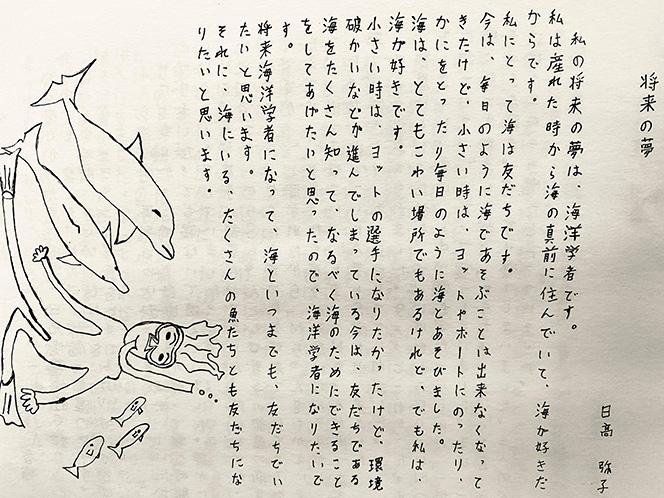 将来の夢
日高 弥子
私の将来の夢は、海洋学者です。
私は産れた時から海の真前に住んでいて、海が好きだ
からです。
私にとって海は友だちです。
今は、毎日のように海であそぶことは出来なくなって
きたけど、小さい時は、ヨットやボートにのったり、
かにをとったり毎日のように海とあそびました。
海は、とてもこわい場所でもあるけれど、でも私は、
海が好きです。
小さい時は、ヨットの選手になりたかったけど、環境
破かいなどが進んでしまっている今は、友だちである
海をたくさん知って、なるべく海のためにできること
をしてあげたいと思ったので、海洋学者になりたいで
す。
将来海洋学者になって、海といつまでも、友だちでい
たいと思います。
それに、海にいる、たくさんの魚たちとも友だちにな
りたいと思います。